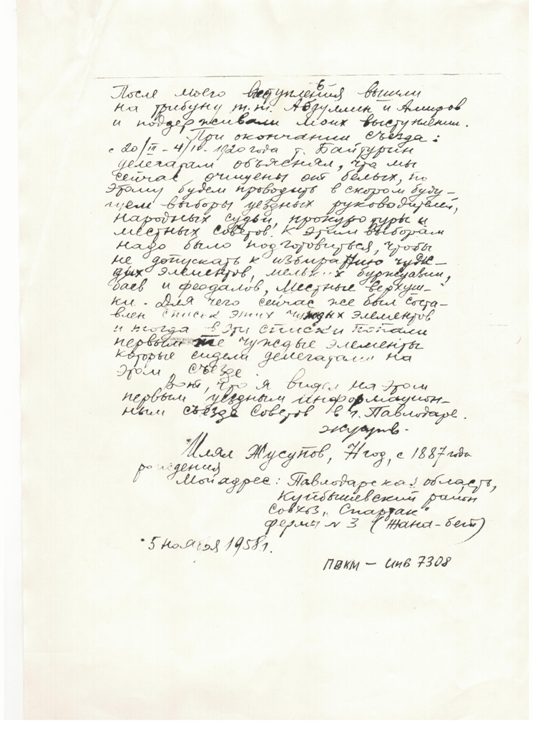 После моего вступления вышли
на трибуну т.т. Абдуллин и Амиров
и поддерживали моих выступлении.
При окончании съезда:
с 20/II - 4/III. 1920 года т. Байтурин
делегатам объяснял, что мы
сейчас очищены от белых, по
этому будем проводить в скором буду-
щем выборы уездных руководителей,
народных судьи, прокуротуры и
местных советов! К этим выборам
надо было подготовиться, чтобы
не допускать к избиранию чуж-
дых элементов, мелких буржуазии,
баев и феодалов, местные верхуш-
ки. Для чего сейчас же был соста-
влен список этих чуждых элементов
и иногда в эти списки попали
первыми те чуждые элементы
которые сидели делегатами на
этом съезде.
Вот, что я видел на этом
первым уездным информацион-
ным съезде Советов в г. Павлодаре.
Жусупов, 71 год, с 1887 года
рождения
Мой адрес: Павлодарская область,
Куйбышевский район
совхоз "Спартак"
ферма № 3 (Жана-бет)
"5 ноября 1958 г.
ПОКМ - инв 7308